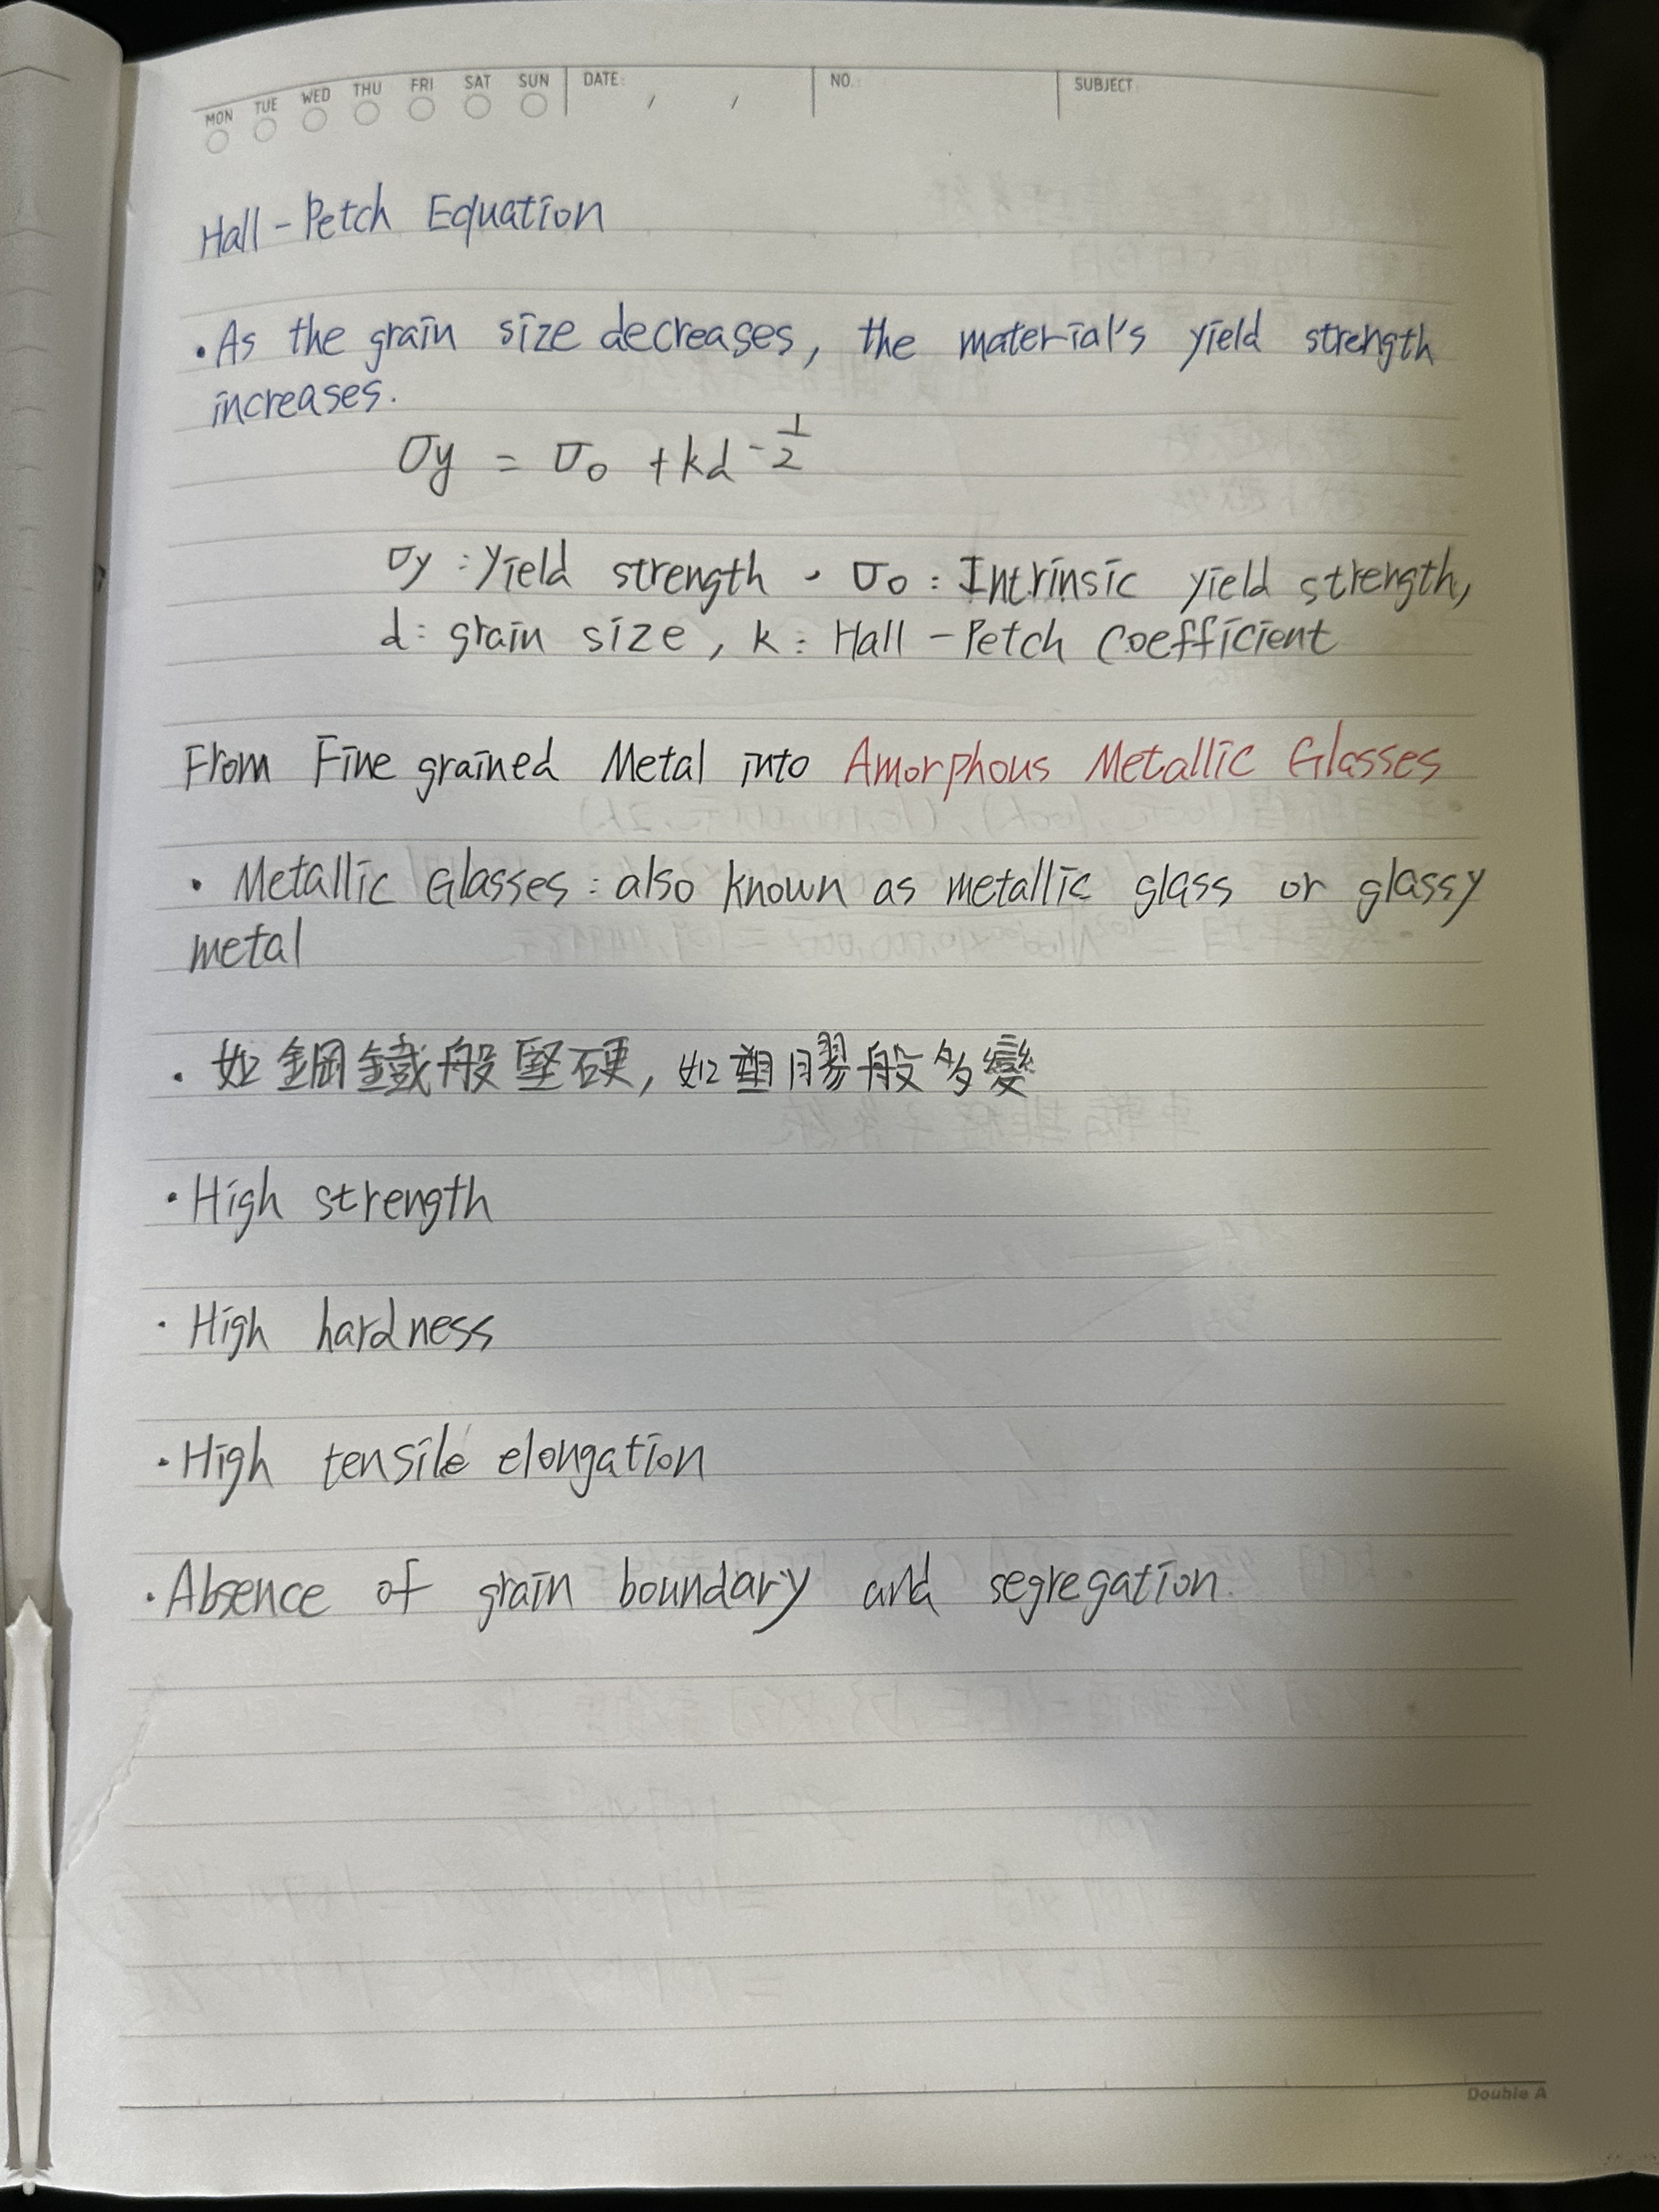 MON TUE WED THU FRI SAT SUN DATE: / / NO.: SUBJECT:
Hall-Petch Equation
• As the grain size decreases, the material's yield strength
increases.
σy = σ0 + kd^-1/2
σy : Yield strength 、 σ0 : Intrinsic yield strength,
d : grain size, k : Hall-Petch Coefficient
From Fine grained Metal into Amorphous Metallic Glasses
• Metallic Glasses : also known as metallic glass or glassy
metal
• 如鋼鐵般堅硬, 如塑膠般多變
• High strength
• High hardness
• High tensile elongation
• Absence of grain boundary and segregation.
Double A